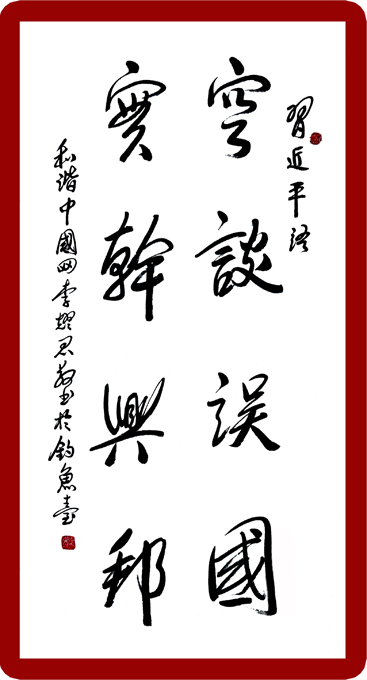 習近平語
空談誤國
實幹興邦
和諧中國四李耀君敬书於钓魚臺